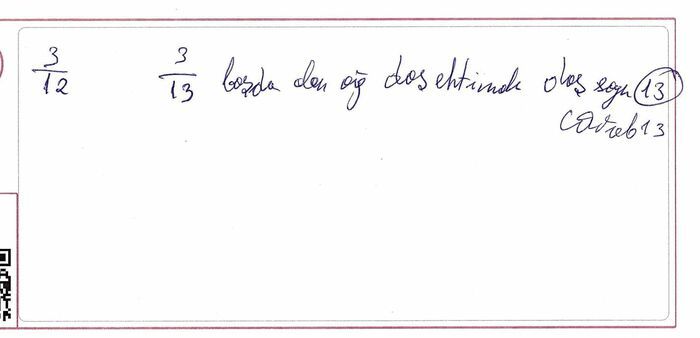 3/12 3/13 başda dən ağ daş ehtimalı daş sayı 13
Cavab 13